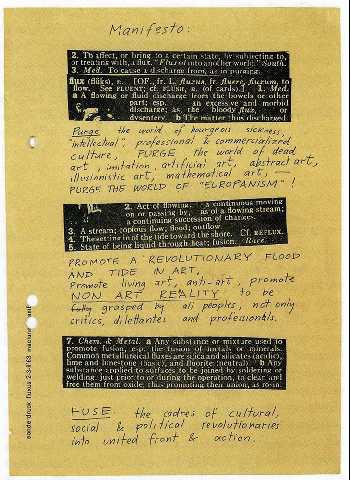 Manifesto:
2. To affect, or bring to a certain state, by subjecting to,
or treating with, a flux. "Fluxed into another world." South.
3. Med. To cause a discharge from, as in purging.
flux (flŭks), n. [OF., fr. L. fluxus, fr. fluere, fluxum, to
flow. See FLUENT; cf. FLUSH, n. (of cards).] 1. Med.
a A flowing or fluid discharge from the bowels or other
part; esp. an excessive and morbid
discharge; as, the bloody flux, or
dysentery. b The matter thus discharged.
Purge the world of bourgeois sickness,
"intellectual", professional & commercialized
culture, PURGE the world of dead
art, imitation, artificial art, abstract art,
illusionistic art, mathematical art, —
PURGE THE WORLD OF "EUROPANISM"!
2. Act of flowing: a continuous moving
on or passing by, as of a flowing stream;
a continuing succession of changes.
3. A stream; copious flow; flood; outflow.
4. The setting in of the tide toward the shore. Cf. REFLUX.
5. State of being liquid through heat; fusion. Rare.
PROMOTE A REVOLUTIONARY FLOOD
AND TIDE IN ART,
Promote living art, anti-art, promote
NON ART REALITY to be
fully grasped by all peoples, not only
critics, dilettantes and professionals.
7. Chem. & Metal. a Any substance or mixture used to
promote fusion, esp. the fusion of metals or minerals.
Common metallurgical fluxes are silica and silicates (acidic),
lime and limestone (basic), and fluorite (neutral). b Any
substance applied to surfaces to be joined by soldering or
welding, just prior to or during the operation, to clean and
free them from oxide, thus promoting their union, as rosin.
FUSE the cadres of cultural,
social & political revolutionaries
into united front & action.